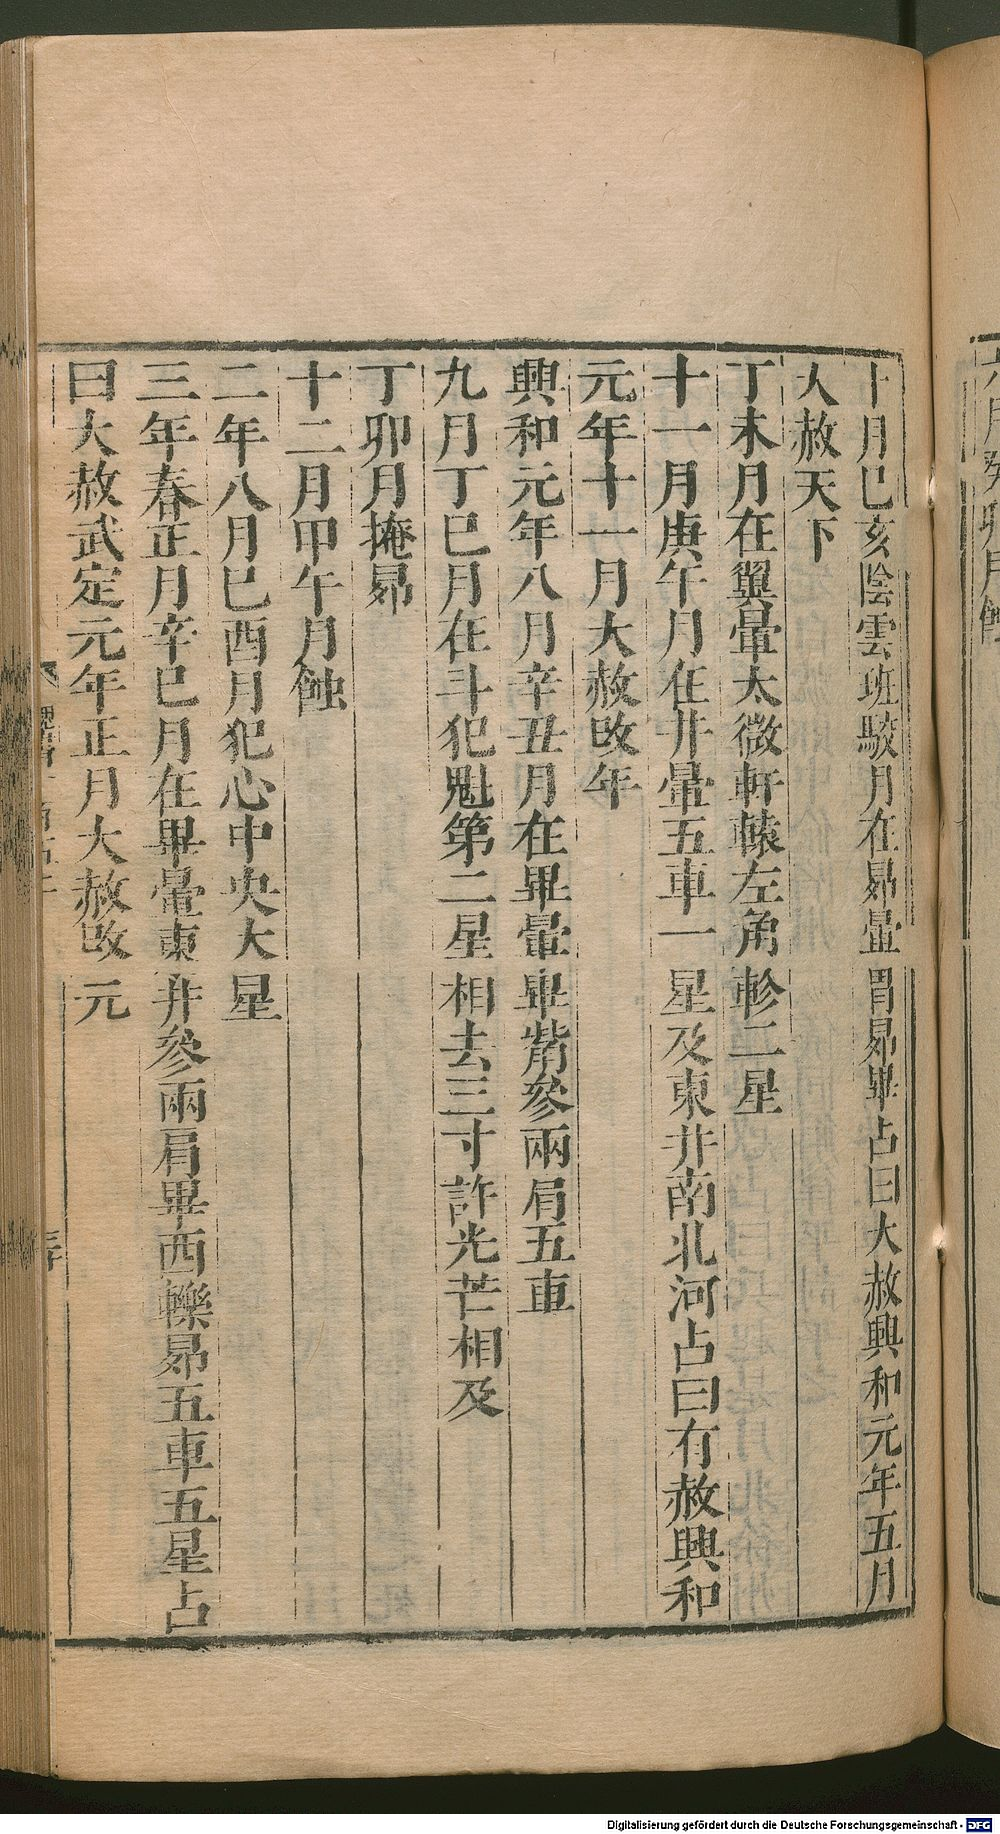 十月己亥陰雲班駮月在昴暈胃昴畢占曰大赦興和元年五月
大赦天下
丁未月在翼暈太微軒轅左角軫二星
十一月庚午月在井暈五車一星及東井南北河占曰有赦興和
元年十一月大赦改年
興和元年八月辛丑月在畢暈畢觜參兩肩五車
九月丁巳月在斗犯魁第二星相去三寸許光芒相及
丁卯月掩昴
十二月甲午月蝕
二年八月己酉月犯心中央大星
三年春正月辛巳月在畢暈東井參兩肩畢西轢昴五車五星占
曰大赦武定元年正月大赦改元
Digitalisierung gefördert durch die Deutsche Forschungsgemeinschaft - DFG